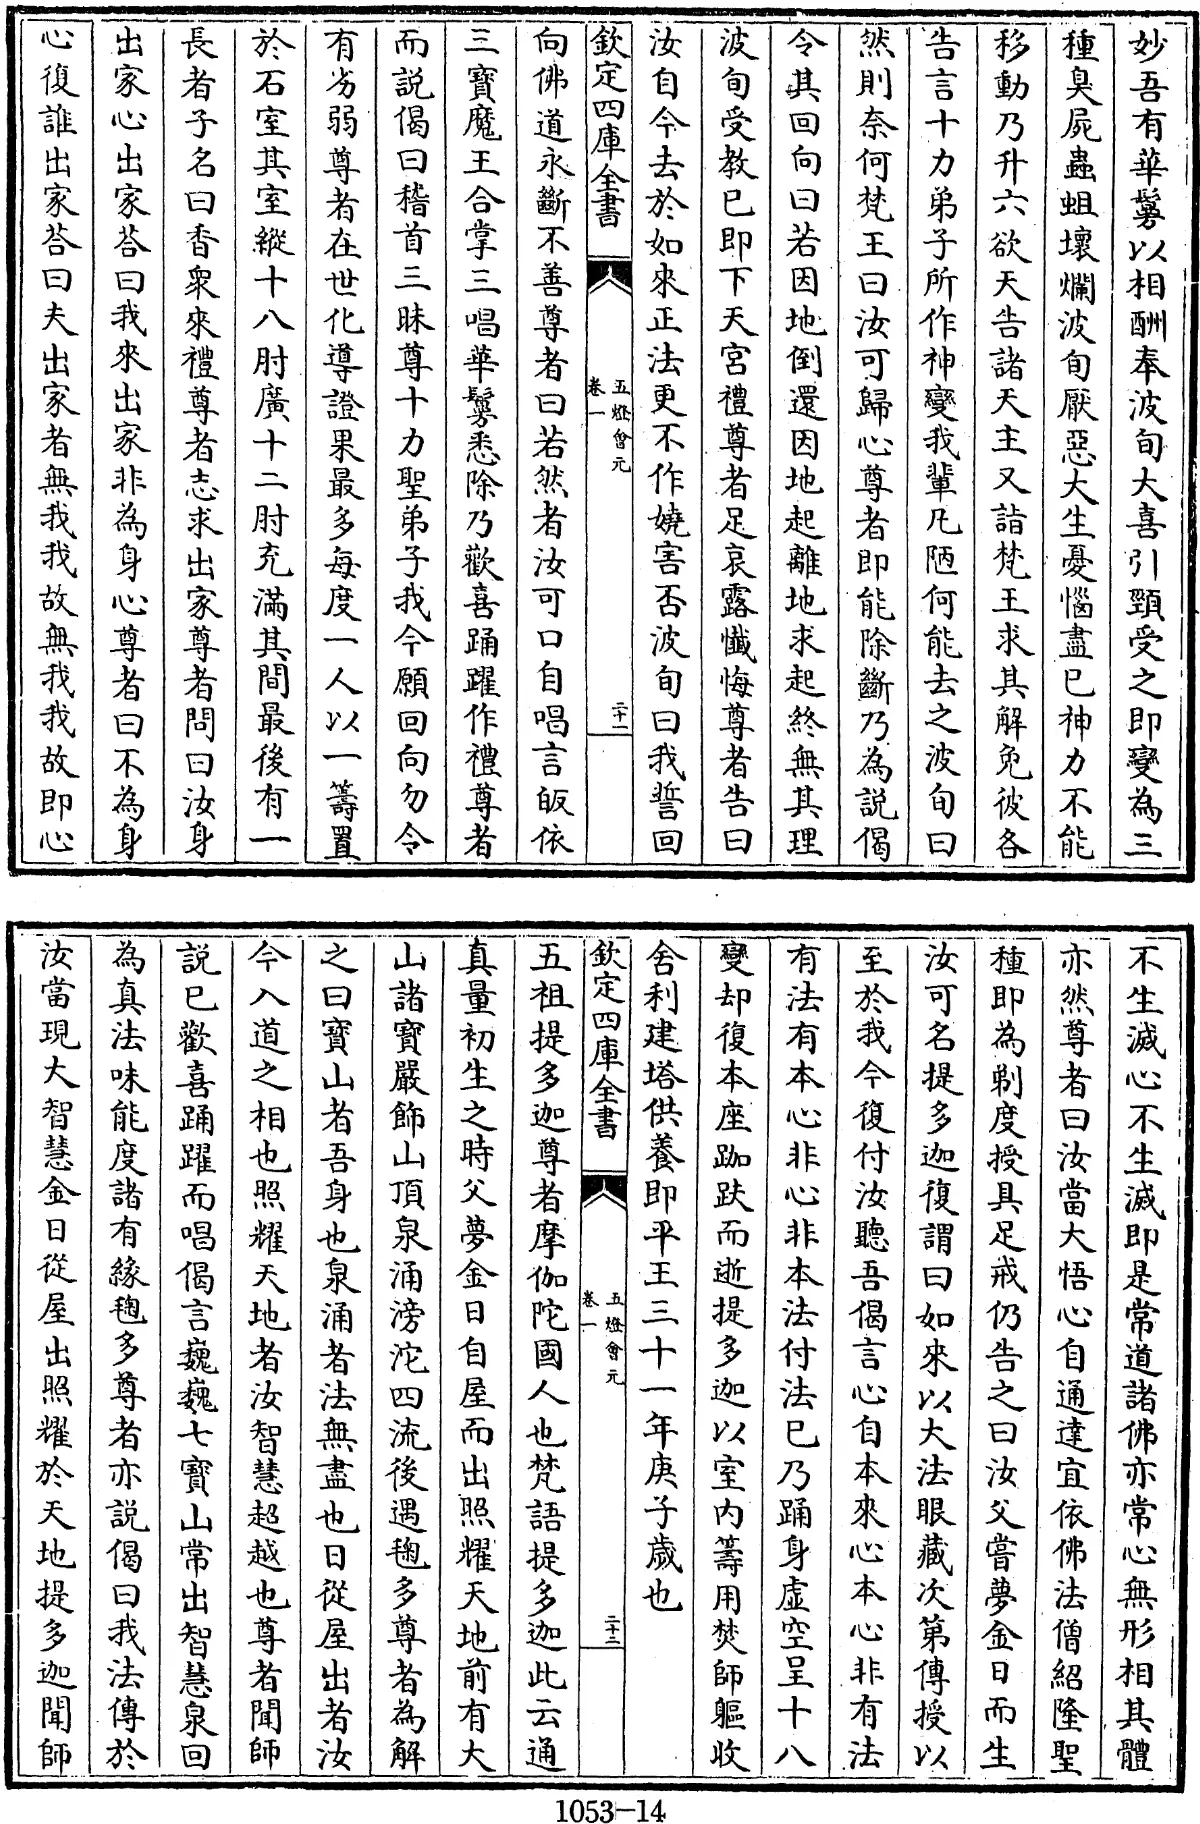 妙吾有華鬘以相酬奉波旬大喜引頸受之即變為三
種臭屍蟲蛆壞爛波旬厭惡大生憂惱盡已神力不能
移動乃升六欲天告諸天主又詣梵王求其解免彼各
告言十力弟子所作神變我輩凡陋何能去之波旬曰
然則奈何梵王曰汝可歸心尊者即能除斷乃為説偈
令其回向曰若因地倒還因地起離地求起終無其理
波旬受教已即下天宮禮尊者足哀露懺悔尊者告曰
汝自今去於如來正法更不作嬈害否波旬曰我誓回
欽定四庫全書
五燈會元
卷一
二十一
向佛道永斷不善尊者曰若然者汝可口自唱言皈依
三寶魔王合掌三唱華鬘悉除乃歡喜踊躍作禮尊者
而説偈曰稽首三昧尊十力聖弟子我今願回向勿令
有劣弱尊者在世化導證果最多每度一人以一籌置
於石室其室縱十八肘廣十二肘充滿其間最後有一
長者子名曰香衆來禮尊者志求出家尊者問曰汝身
出家心出家荅曰我來出家非為身心尊者曰不為身
心復誰出家荅曰夫出家者無我我故無我我故即心
不生滅心不生滅即是常道諸佛亦常心無形相其體
亦然尊者曰汝當大悟心自通達宜依佛法僧紹隆聖
種即為剃度授具足戒仍告之曰汝父嘗夢金日而生
汝可名提多迦復謂曰如來以大法眼藏次第傳授以
至於我今復付汝聽吾偈言心自本來心本心非有法
有法有本心非心非本法付法已乃踊身虛空呈十八
變却復本座跏趺而逝提多迦以室內籌用焚師軀收
舍利建塔供養即平王三十一年庚子歲也
欽定四庫全書
五燈會元
卷一
二十二
五祖提多迦尊者摩伽陀國人也梵語提多迦此云通
真量初生之時父夢金日自屋而出照耀天地前有大
山諸寶嚴飾山頂泉涌滂沱四流後遇毱多尊者為解
之曰寶山者吾身也泉涌者法無盡也日從屋出者汝
今入道之相也照耀天地者汝智慧超越也尊者聞師
説已歡喜踊躍而唱偈言巍巍七寶山常出智慧泉回
為真法味能度諸有緣毱多尊者亦説偈曰我法傳於
汝當現大智慧金日從屋出照耀於天地提多迦聞師
1053-14